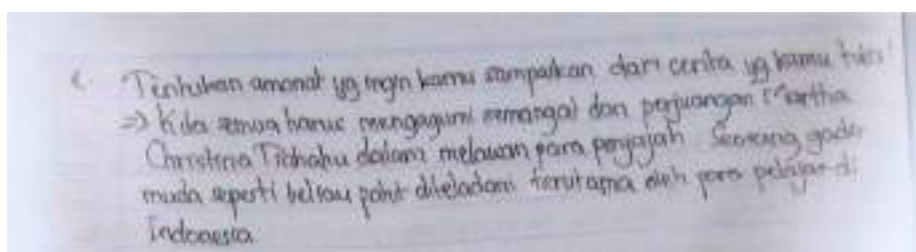 Tentukan amanat yg ingin kamu sampaikan dari cerita yg kamu tulis!
=> Kita semua harus mengagumi semangat dan perjuangan Martha
Christina Tiahahu dalam melawan para penjajah. Seorang gadis
muda seperti beliau patut diteladani terutama oleh para pelajar di
Indonesia